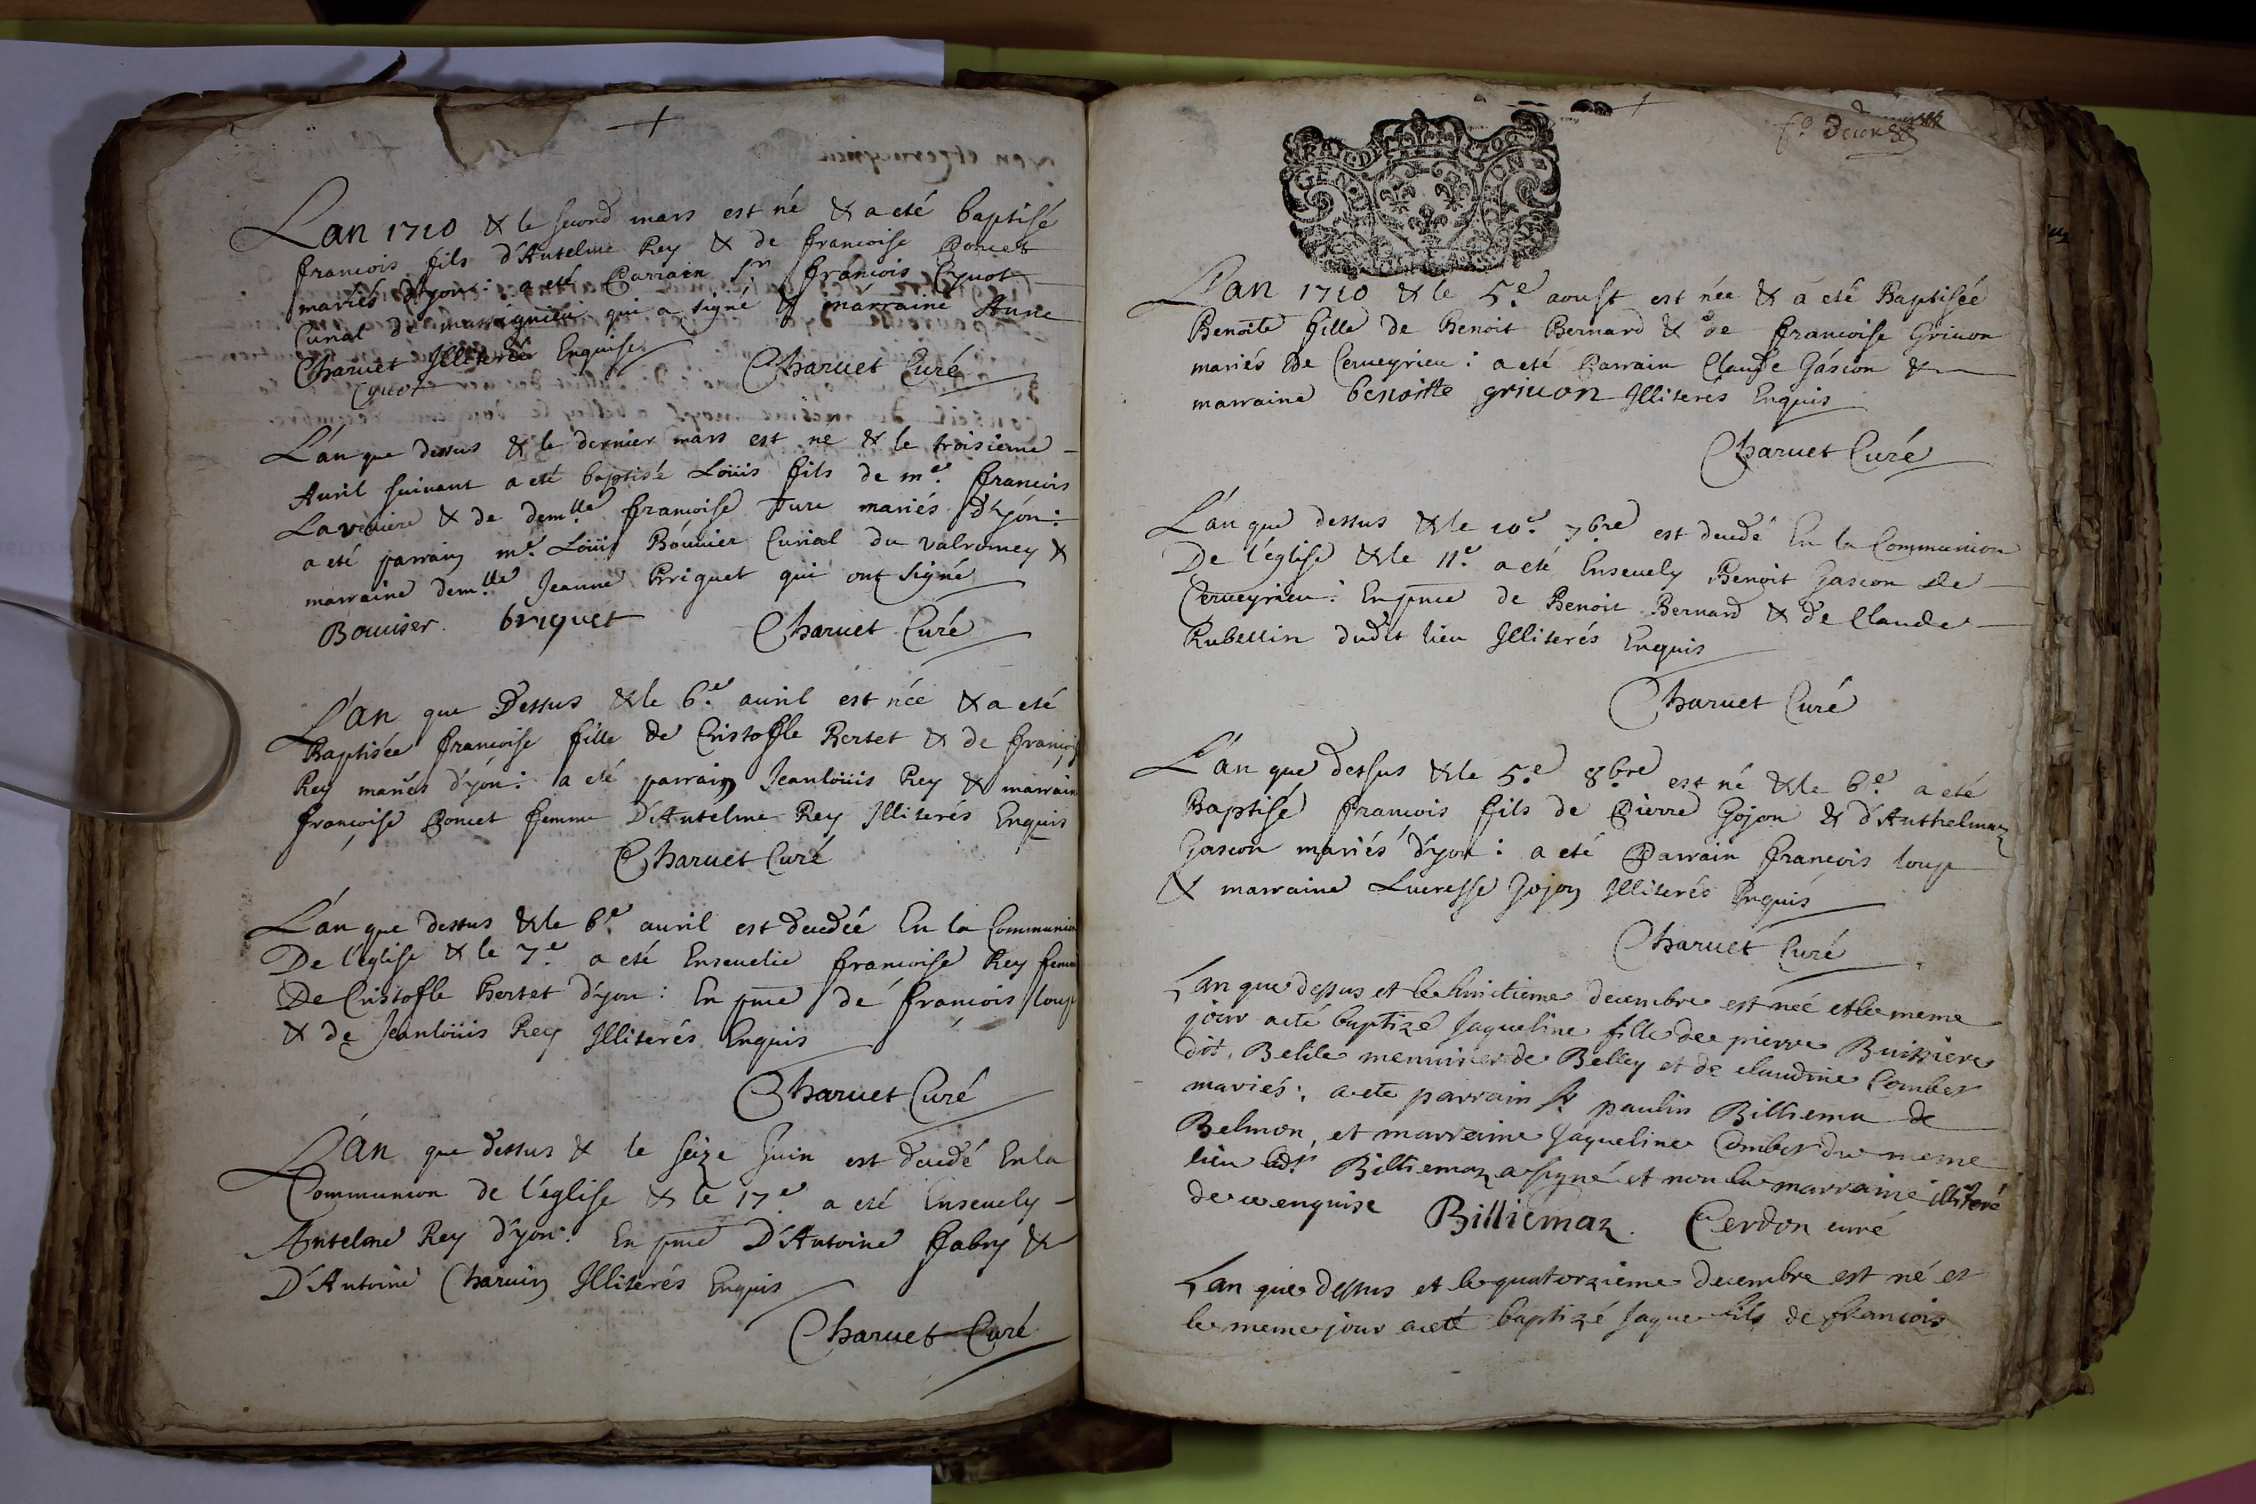 Lan 1710 & le second mars est né & a eté baptisé
francois fils d'Antelme Rey & de francoise Poncet
mariés d'yon: a eté Parrain Sr francois Cyvot
Curial de marignieu qui a signé & marraine Anne
Charvet Illiterée Enquise
Cyvot
Charvet Curé
L'an que dessus & le dernier mars est né & le troisieme
Avril suivant a eté baptisé Loüis fils de me. francois
Laveniere & de demlle françoise Ture mariés d'yon:
a eté parrain me. Loüis Bouvier Curial du valromey &
marraine demlle Jeanne Briquet qui ont signé
Bouvier. briquet
Charvet Curé
L'an que Dessus & le 6.e avril est née & a eté
Baptisée françoise fille de Cristofle Bertet & de françoise
Rey mariés d'yon: a eté parrain Jeanloüis Rey & marraine
françoise Poncet femme D'Antelme Rey Illiterés Enquis
Charvet Curé
L'an que dessus & le 6.e avril est decedée En la Communion
De l'église & le 7.e a eté Ensevelie francoise Rey femme
De Cristofle Bertet d'yon: En pnce de francois loup
& de Jeanloüis Rey Illiterés Enquis
Charvet Curé
L'an que dessus & le seize Juin est decedé En la
Communion de l'église & le 17.e a eté Ensevely
Antelme Rey d'yon: En pnce D'Antoine fabry &
D'Antoine Charvin Illiterés Enquis
Charvet Curé
GEN
L'an 1710 & le 5.e aoust est née & a eté Baptisée
Benoite fille de Benoit Bernard & de francoise Grivon
mariés de Cerveyrieu: a eté Parrain Claude Gascon &
marraine benoitte grivon Illiterés Enquis
Charvet Curé
L'an que dessus & le 10.e 7bre est decedé En la Communion
De l'église & le 11.e a eté Ensevely Benoit Gascon de
Cerveyrieu: En pnce de Benoit Bernard & de Claude
Rubellin dudit lieu Illiterés Enquis
Charvet Curé
L'an que dessus & le 5.e 8bre est né & le 6.e a eté
Baptisé francois fils de Pierre Gojon & d'Anthelmaz
Gascon mariés d'yon: a eté Parrain françois loup
& marraine Lucresse Gojon Illiterés Enquis
Charvet Curé
Lan que dessus et le huictieme decembre est neé et le meme
jour a eté baptizé Jaqueline fille de pierre Buissiere
dit, Belile menuisier de Belley et de claudine Combet
mariés; a ete parrain Sr paulin Billiema de
Belmon, et marraine Jaqueline Combet du meme
lieu ledt Billiemaz a signé et non la marraine illiteré
de ce enquise Billiemaz. Cerdon curé
Lan que dessus et le quatorzieme decembre est né et
le meme jour a eté baptizé Jaque fils de francois